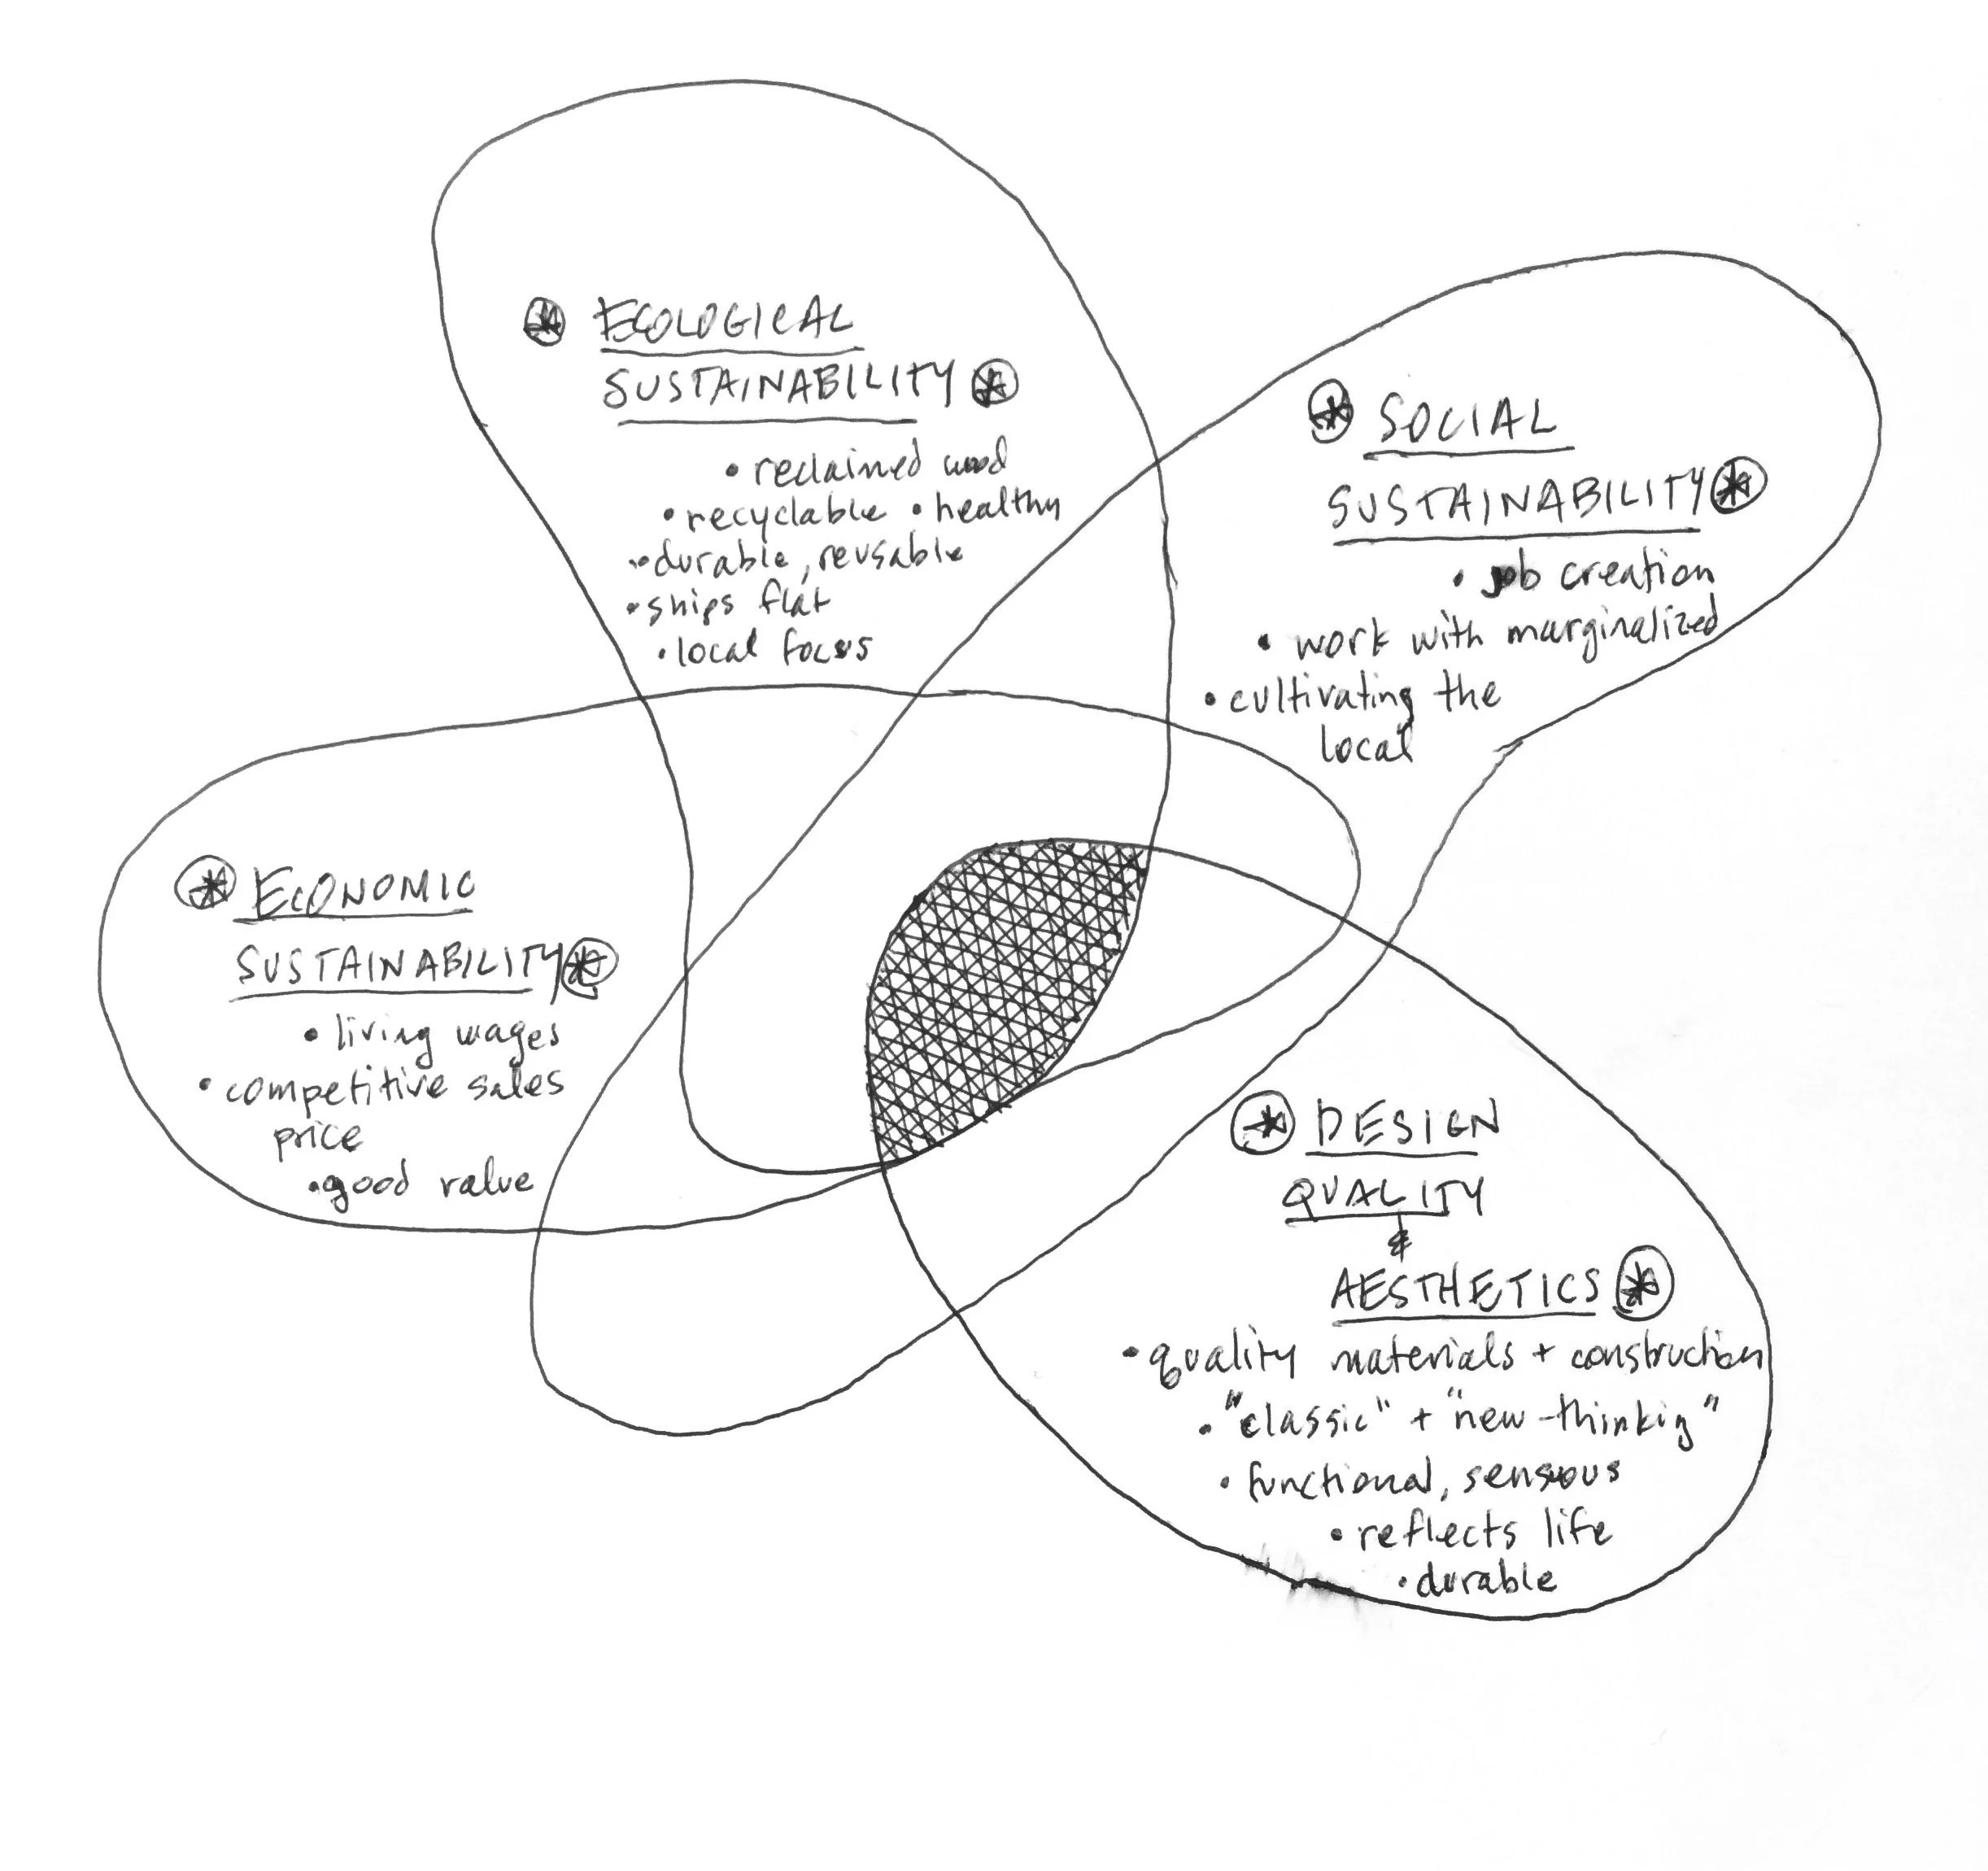 ECOLOGICAL
SUSTAINABILITY
• reclaimed wood
• recyclable • healthy
• durable, reusable
• ships flat
• local focus
SOCIAL
SUSTAINABILITY
• job creation
• work with marginalized
• cultivating the
local
ECONOMIC
SUSTAINABILITY
• living wages
• competitive sales
price
• good value
DESIGN
QUALITY
&
AESTHETICS
• quality materials + construction
• "classic" + "new-thinkig"
• functional, sensuous
• reflects life
• durable